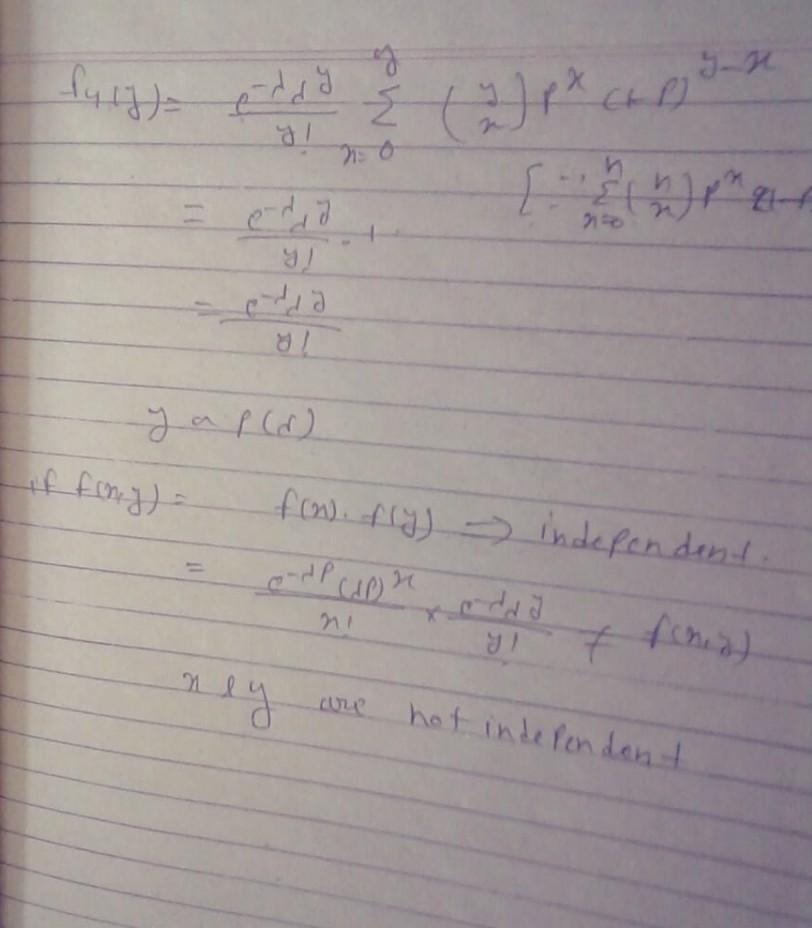 f_Y(y) = e^-λ λ^y / y! Σ_{x=0}^{y} (y x) p^x (1-p)^{y-x}
[∵ Σ_{x=0}^{n} (n x) p^x
= e^-λ λ^y / y! · 1
= e^-λ λ^y / y!
y ~ P(λ)
if f(x,y) = f(x). f(y) ⇒ independent.
= e^-λp (λp)^x / x! × e^-λ λ^y / y! ≠ f(x,y)
x & y are not independent